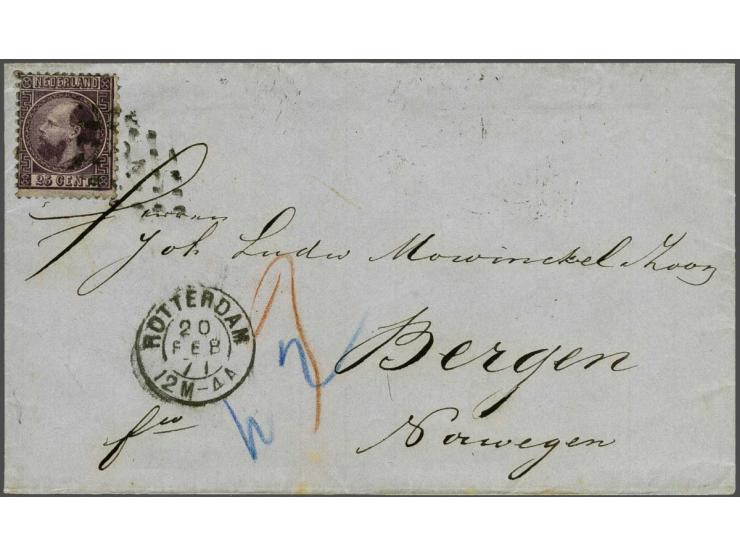 NEDERLAND
25 CENT
Heeren
Joh Ludw Mowinckel & Zoon
Bergen
Norwegen
ROTTERDAM
20
FEB
71
12M-4A
frco